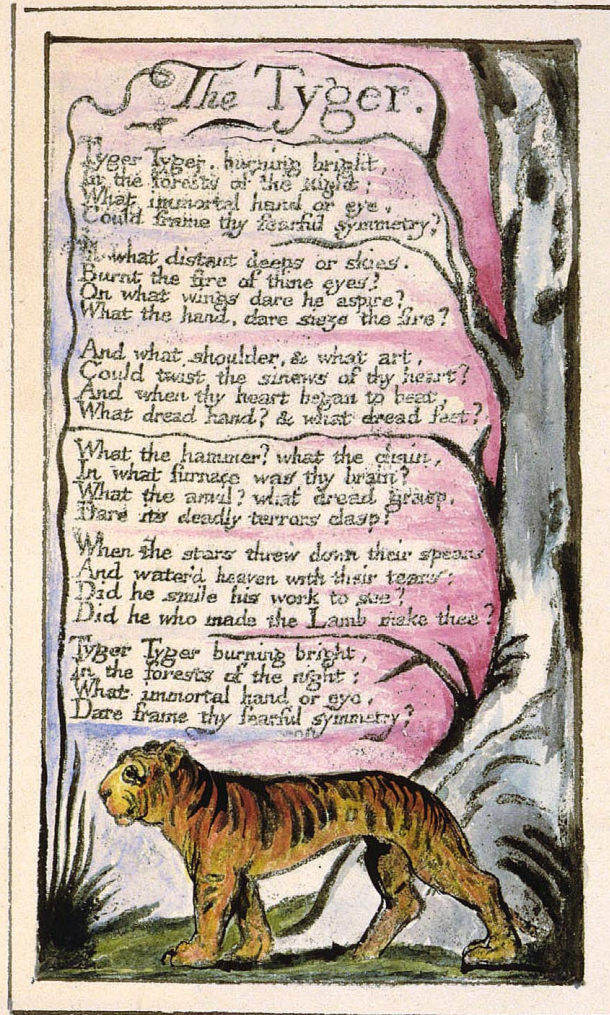 The Tyger.
Tyger Tyger. burning bright,
In the forests of the night;
What immortal hand or eye,
Could frame thy fearful symmetry?
In what distant deeps or skies.
Burnt the fire of thine eyes?
On what wings dare he aspire?
What the hand, dare sieze the fire?
And what shoulder, & what art,
Could twist the sinews of thy heart?
And when thy heart began to beat,
What dread hand? & what dread feet?
What the hammer? what the chain,
In what furnace was thy brain?
What the anvil? what dread grasp,
Dare its deadly terrors clasp!
When the stars threw down their spears
And water'd heaven with their tears:
Did he smile his work to see?
Did he who made the Lamb make thee?
Tyger Tyger burning bright,
In the forests of the night:
What immortal hand or eye,
Dare frame thy fearful symmetry?